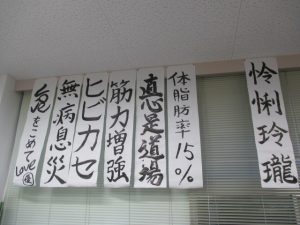 怜悧玲瓏
体脂肪率15%
直心是道場
筋力増強
ヒビカセ
無病息災
をこめてLove